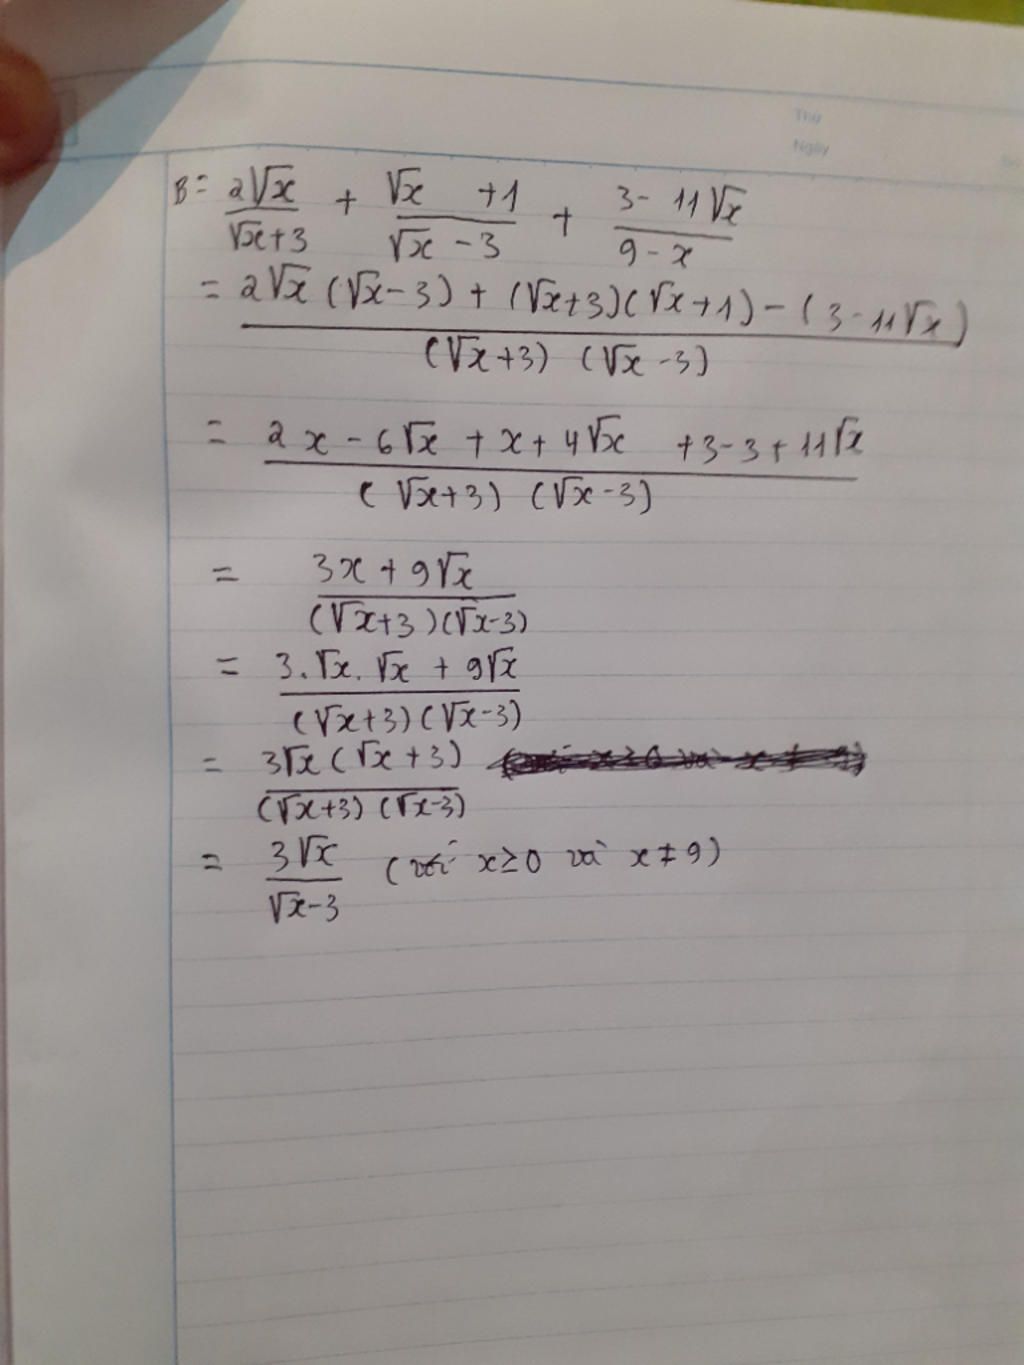 Thứ
Ngày
B = 2√x / (√x+3) + (√x +1) / (√x −3) + (3− 11√x) / (9−x)
= 2√x (√x−3) + (√x+3)(√x+1) − (3−11√x) / (√x+3) (√x−3)
= 2x − 6√x + x + 4√x +3−3+11√x / (√x+3) (√x−3)
= 3x + 9√x / (√x+3)(√x−3)
= 3.√x.√x + 9√x / (√x+3)(√x−3)
= 3√x (√x+3) / (√x+3) (√x−3)
= 3√x / √x−3 (với x≥0 và x≠9)